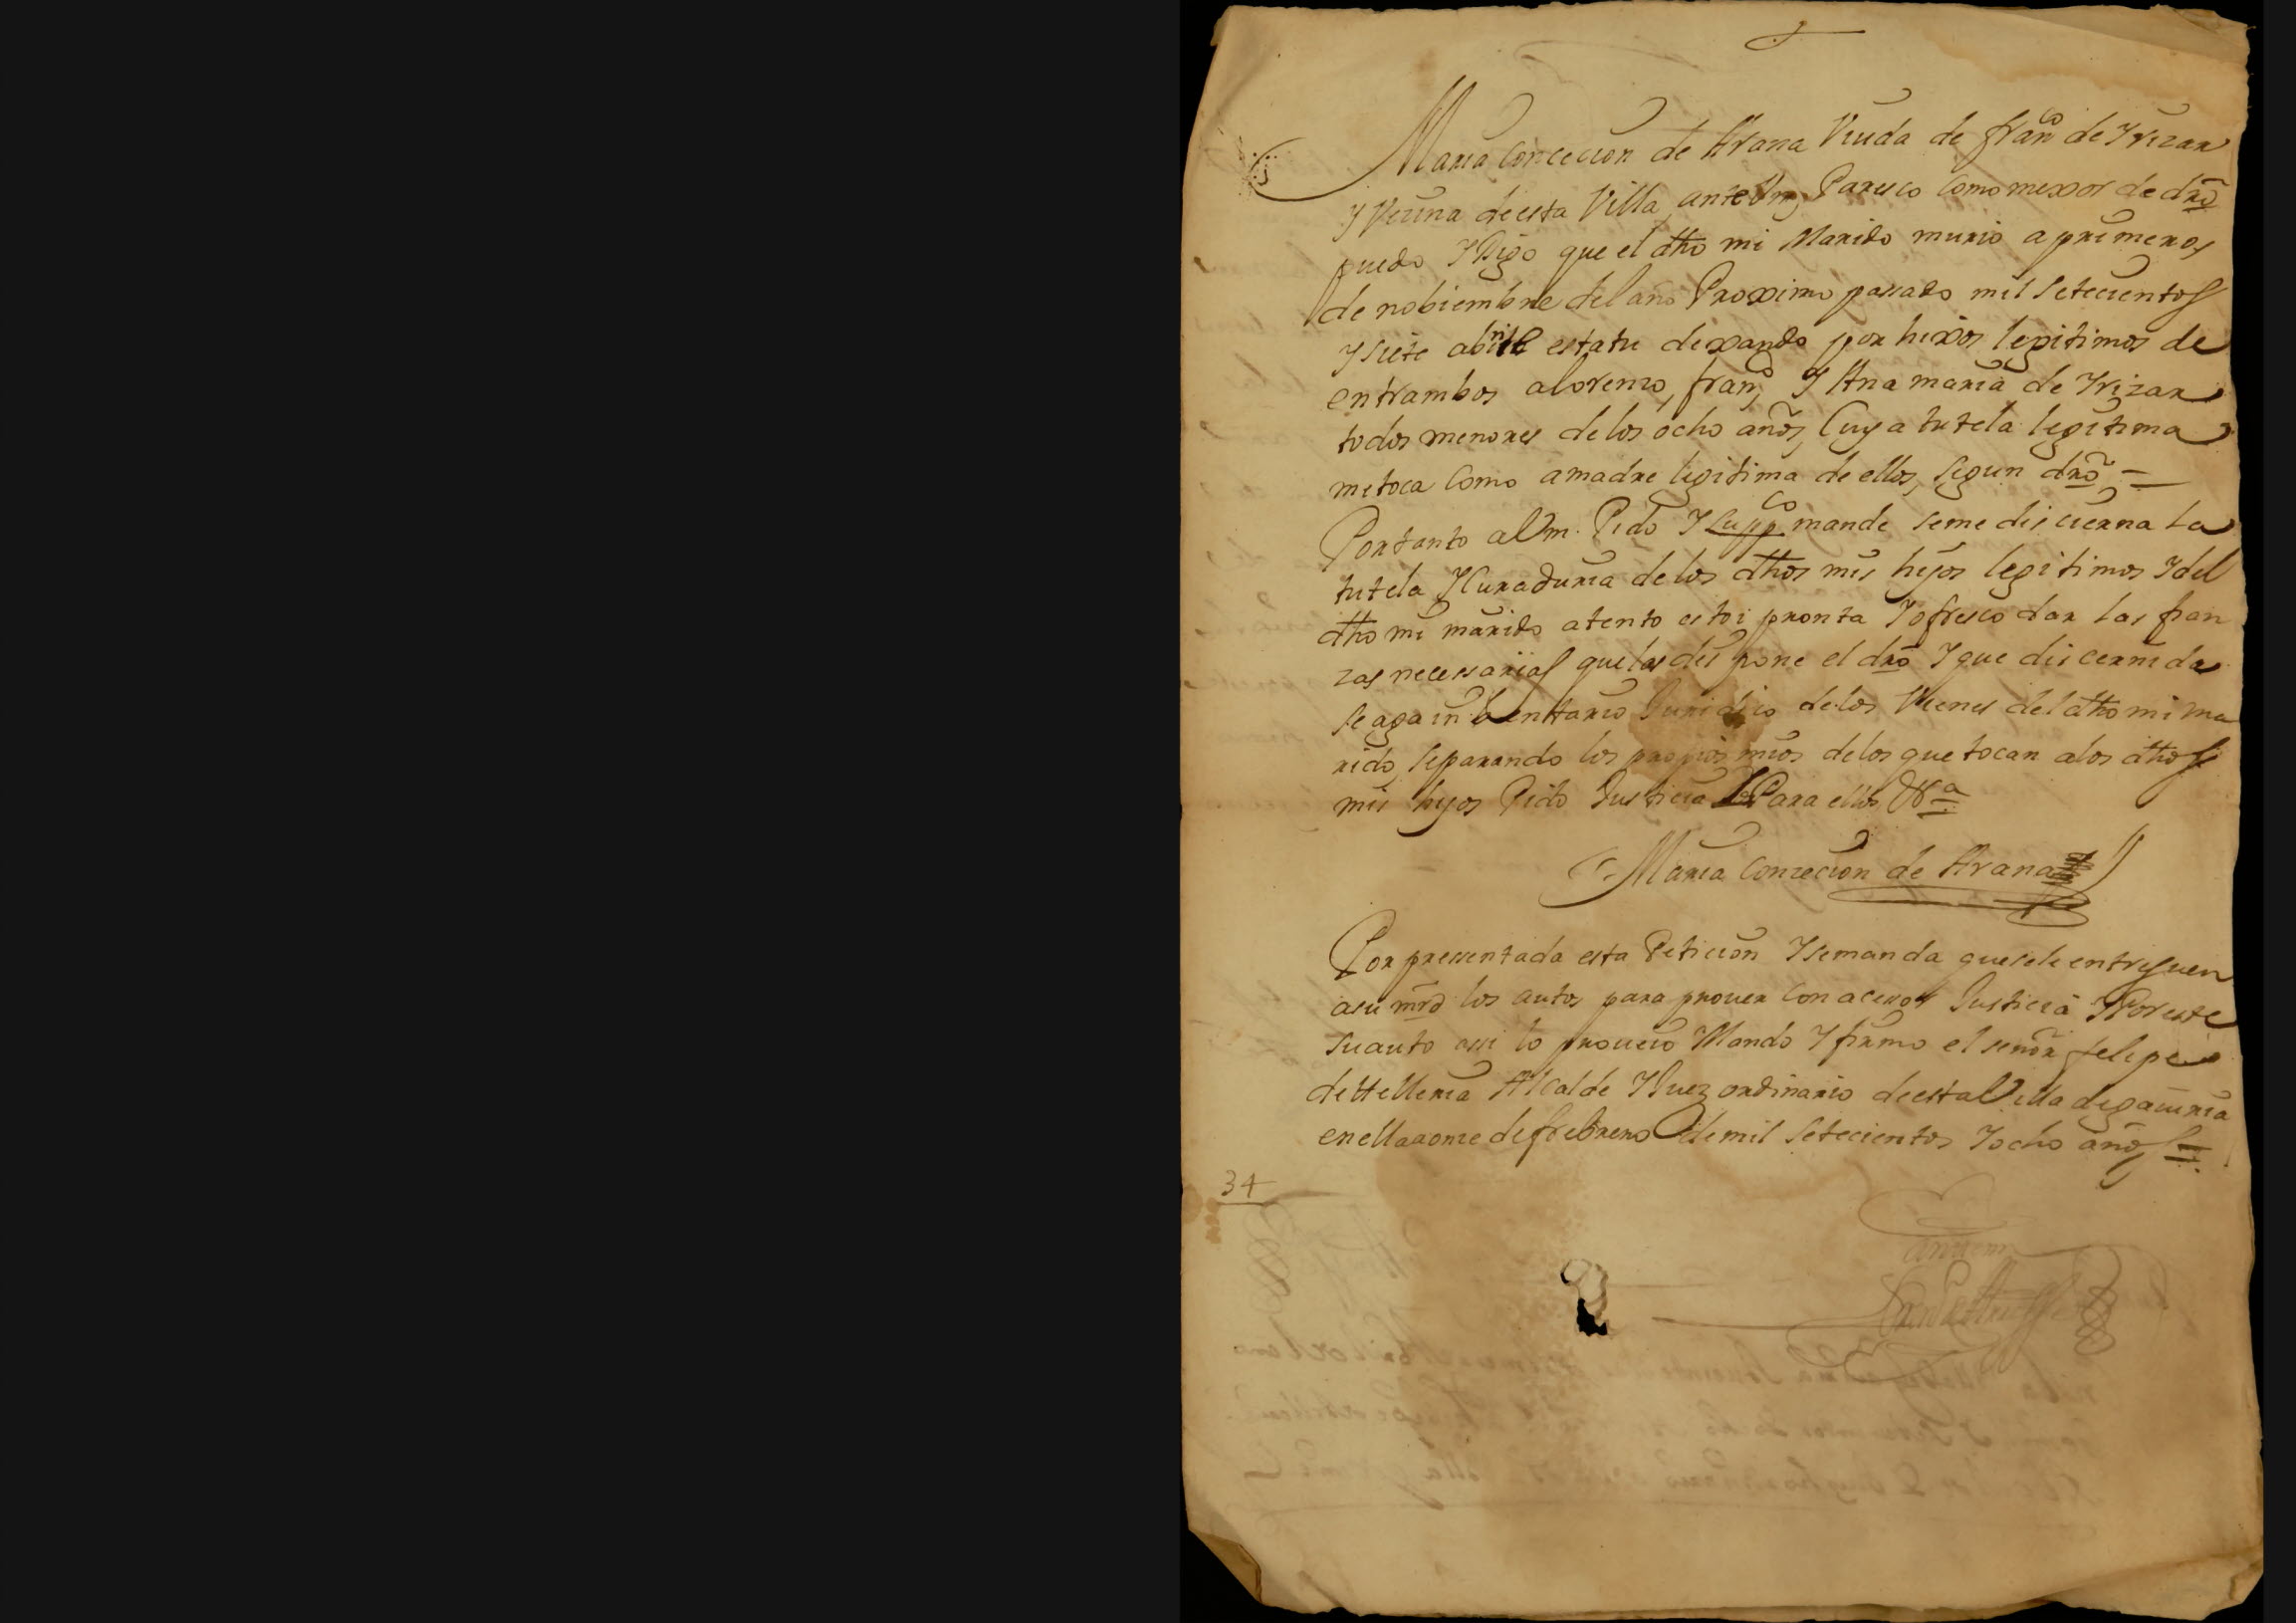 Maria Concecion de Arana Viuda de fran^co de Yrizar
y Vecina de esta Villa, ante Vm, Paresco como mexor de dr̃o
puedo Y Digo que el dho mi Marido murio a primeros
de nobiembre del año Proximo passado mil setecientos
y siete abintestatu dexando por hixos legitimos de
entrambos a lorenzo, fran^co, Y Ana maria de Yrizar
todos menores de los ocho años, Cuya tutela legitima
me toca Como a madre legitima de ellos, segun dr̃o =
Por tanto a Vm. Pido Y Supp^co mande se me discierna la
tutela Y Curaduria de los dhos mis hijos legitimos Y del
dho mi marido atento estoi pronta Y ofresco dar las fian
zas necessarias que las dispone el dr̃o Y que discernida
se aga inbentario Juridico de los Vienes del dho mi ma
rido, separando los propios mios de los que tocan a los dhos
mis hijos Pido Justicia Para ello, &^a
Maria Concecion de Arana
Por pressentada esta Peticion Y se manda que se le entreguen
a su mrd los autos para prover con acesor Justicia Y Por este
su auto assi lo proueio Mando Y firmo el señor felipe
de ttelleria Alcalde Y Juez ordinario de esta Villa de gauiria
en ella a onze de frebrero de mil setecientos Y ocho años =
34